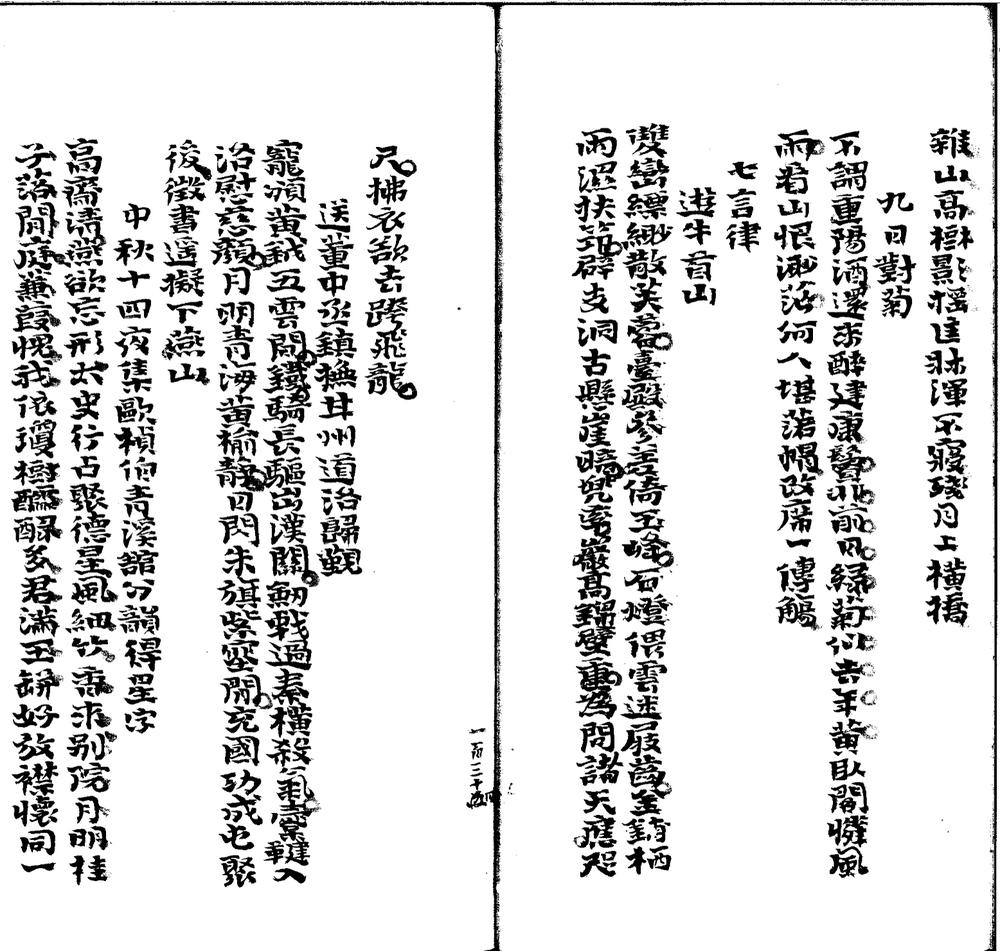 雜山高樹影搖住牀渾不寢殘月上橫橋
九日對菊
不謂重陽酒還來醉建康鬢非前日綠菊似去年黃臥閣憐風
雨看山悵渺茫何人堪落帽改席一傳觴
七言律
遊牛首山
雙巒縹緲散芙蓉臺殿參差倚玉峰石磴偎雲迷屐齒金銷栖
雨澀扶筇辟支洞古懸崖暗兜率巖高錦壁重為問諸天應咫
尺拂衣欲去躡飛龍
送董中丞鎮撫甘州道洛歸覲
寵頒黃鉞五雲間鐵騎長驅出漢關劍戟過秦橫殺氣橐鞬入
洛慰慈顏月明青海黃榆靜日閃朱旗紫塞閒充國功成屯聚
後徵書遥擬下燕山
中秋十四夜集歐楨伯青溪舘分韻得星字
高齋清讌欲忘形太史行占聚德星風細竹香來别院月明桂
子落閒庭蒹葭愧我依瓊樹醽醁多君滿玉缾好放襟懷同一
一百二十